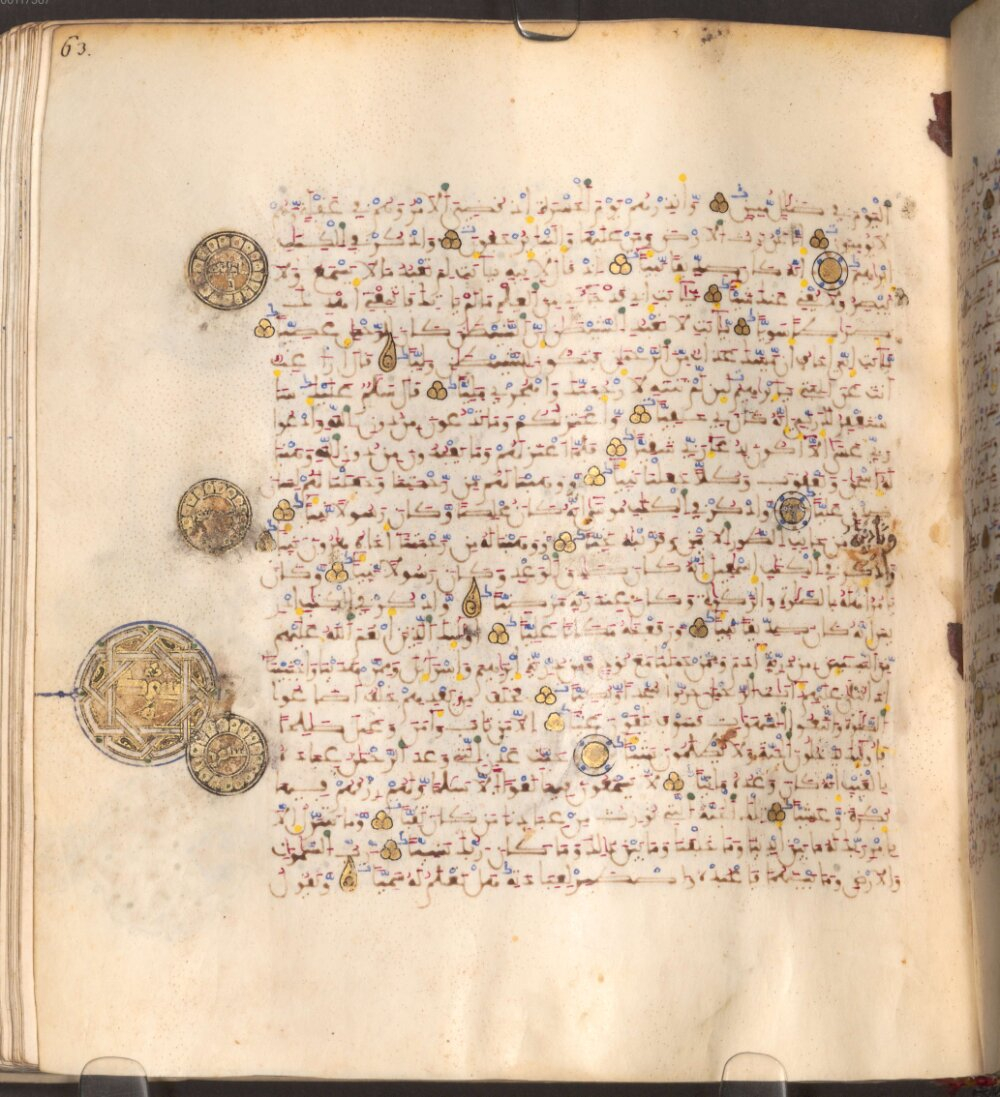 63.
اليوم في ضلل مبين وانذرهم يوم الحسرة اذ قضي الامر وهم في غفلة وهم
لا يومنون انا نحن نرث الارض ومن عليها والينا يرجعون واذكر في الكتب
ابرهيم انه كان صديقا نبيا اذ قال لابيه يابت لم تعبد ما لا يسمع ولا
يبصر ولا يغني عنك شيا يابت اني قد جاءني من العلم ما لم ياتك فاتبعني اهدك
صرطا سويا يابت لا تعبد الشيطن ان الشيطن كان للرحمن عصيا
يابت اني اخاف ان يمسك عذاب من الرحمن فتكون للشيطن وليا قال اراغب
انت عن الهتي يابرهيم لين لم تنته لارجمنك واهجرني مليا قال سلم عليك سا
ستغفر لك ربي انه كان بي حفيا واعتزلكم وما تدعون من دون الله وادعوا
ربي عسى الا اكون بدعاء ربي شقيا فلما اعتزلهم وما يعبدون من دون الله وهبنا
له اسحق ويعقوب وكلا جعلنا نبيا ووهبنا لهم من رحمتنا وجعلنا لهم لسان
صدق عليا واذكر في الكتب موسى انه كان مخلصا وكان رسولا نبيا
وندينه من جانب الطور الايمن وقربنه نجيا ووهبنا له من رحمتنا اخاه هرون نبيا
واذكر في الكتب اسمعيل انه كان صدق الوعد وكان رسولا نبيا وكان
يامر اهله بالصلوة والزكوة وكان عند ربه مرضيا واذكر في الكتب ادر
يس انه كان صديقا نبيا ورفعنه مكانا عليا اوليك الذين انعم الله عليهم
من النبين من ذرية ادم وممن حملنا مع نوح ومن ذرية ابرهيم واسريل وممن هدينا واجتبينا
اذا تتلى عليهم ايت الرحمن خروا سجدا وبكيا فخلف من بعدهم خلف اضاعوا
الصلوة واتبعوا الشهوت فسوف يلقون غيا الا من تاب وامن وعمل صلحا
فاوليك يدخلون الجنة ولا يظلمون شيا جنت عدن التي وعد الرحمن عباده
بالغيب انه كان وعده ماتيا لا يسمعون فيها لغوا الا سلما ولهم رزقهم فيها
بكرة وعشيا تلك الجنة التي نورث من عبادنا من كان تقيا وما نتنزل الا
بامر ربك له ما بين ايدينا وما خلفنا وما بين ذلك وما كان ربك نسيا رب السموت
والارض وما بينهما فاعبده واصطبر لعبدته هل تعلم له سميا ويقول